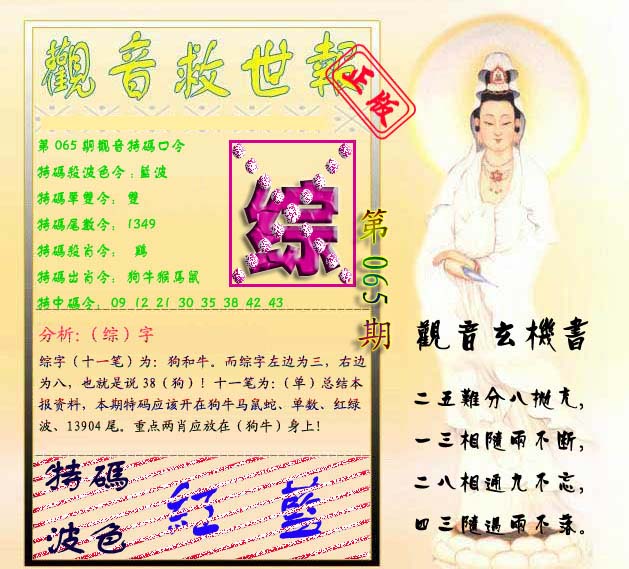 觀音救世報
正版
第065期觀音特碼口令
特碼殺波色令：藍波
特碼單雙令： 雙
特碼尾數令： 1349
特碼殺肖令： 鷄
特碼出肖令： 狗牛猴馬鼠
特中碼令： 09 12 21 30 35 38 42 43
综
第065期
分析:（综）字
综字（十一笔）为：狗和牛。而综字左边为三，右边
为八，也就是说38（狗）！十一笔为：（单）总结本
报资料，本期特码应该开在狗牛马鼠蛇、单数、红绿
波、13904尾。重点两肖应放在（狗牛）身上！
特碼
波色
紅 藍
觀音玄機書
二五難分八拋克，
一三相隨兩不斷，
二八相通九不忘，
四三隨過兩不棄。